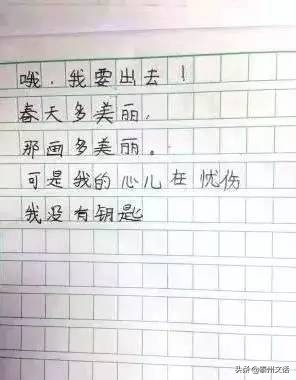 哦，我要出去！
春天多美丽，
那画多美丽。
可是我的心儿在忧伤
我没有钥匙
头条@赣州文语